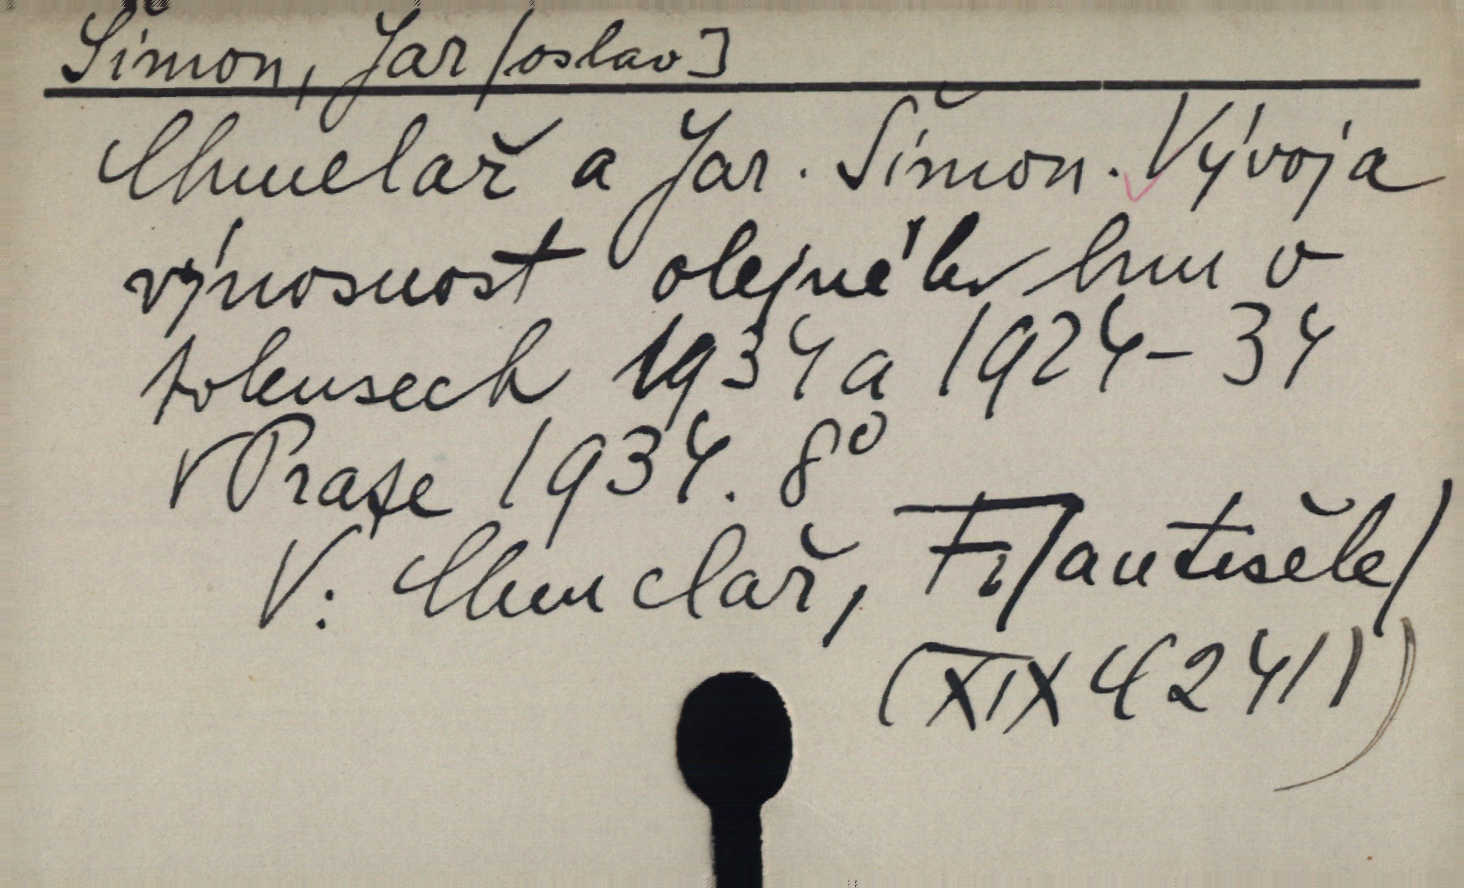 Šimon, Jar[oslav]
Chmelař a Jar. Šimon. Vývoj a
výnosnost olejného lnu v
pokusech 1934 a 1924-34
V Praze 1934. 8°
V: Chmelař, Fr[antišek]
(XIX 424/1)